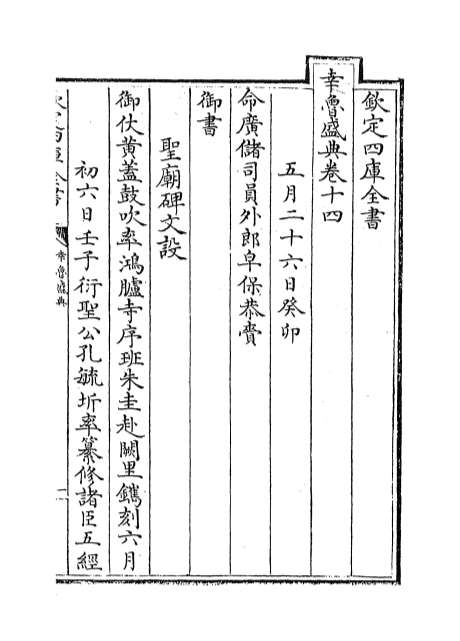 欽定四庫全書
幸魯盛典卷十四
五月二十六日癸卯
命廣儲司員外郎皁保恭賫
御書
聖廟碑文設
御仗黄蓋鼓吹率鴻臚寺序班朱圭赴闕里鐫刻六月
初六日壬子衍聖公孔毓圻率纂修諸臣五經
幸魯盛典